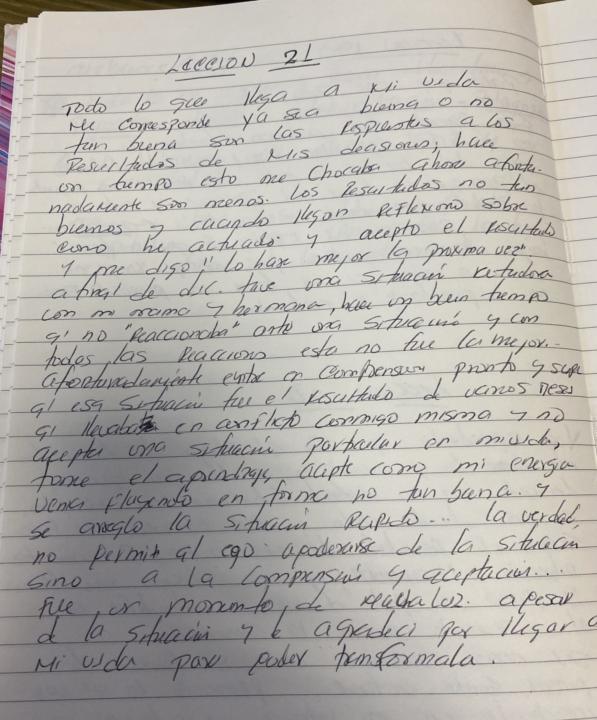 LECCION 21
Todo lo que llega a mi vida
me corresponde ya sea buena o no
tan buena son las respuestas a los
Resultados de mis decisiones, hace
un tiempo esto me chocaba ahora afortu-
nadamente son menos. Los Resultados no tan
buenos y cuando llegan Reflexiono sobre
como he actuado. y acepto el resultado
y me digo "lo hare mejor la proxima vez"
a final de dic. tuve una situación retadora
con mi mama y hermana, hace un buen tiempo
q' no "Reaccionaba" ante una situación y con
todas las Reacciones esta no fue la mejor.-
afortunadamente entre en comprension pronto y supe
q' esa situación fue el resultado de varios meses
q' llevaba en conflicto conmigo misma y no
acepta una situación particular en mi vida,
tome el aprendizaje, acepte como mi energia
venia fluyendo en forma no tan buena. y
se arreglo la situación Rapido... la verdad,
no permiti al ego apoderarse de la situación
sino a la comprensión y aceptación...
fue un momento, de mucha luz. apesar
de la situación y le agradeci por llegar a
mi vida para poder transformala.